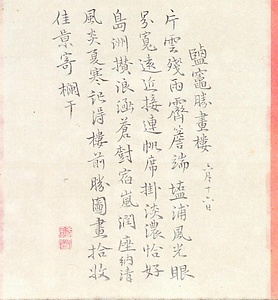 鹽竈勝畫樓 六月十六日
片雲殘雨霽簷端塩浦風光眼
界寬遠近接連帆席掛淡濃恰好
島洲攢浪涵蒼對宿嵐潤座納清
風炎夏寒記得樓前勝圖畫拾收
佳景寄欄干